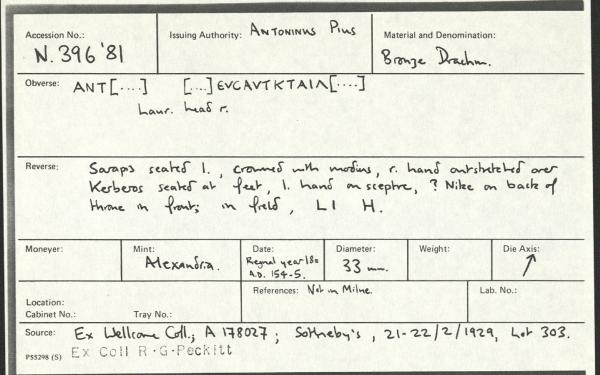 Accession No.: N. 396 '81
Issuing Authority: ANTONINUS PIUS
Material and Denomination: Bronze Drachm.
Obverse: ANT[....] [...]EVCAVTKTAIΛ[....]
Laur. head r.
Reverse: Sarapis seated l., crowned with modius, r. hand outstretched over
Kerberos seated at feet, l. hand on sceptre, ? Nike on back of
throne in front; in field, L I H.
Moneyer:
Mint: Alexandria.
Date: Regnal year 18=
A.D. 154-5.
Diameter: 33 mm.
Weight:
Die Axis: ↗
Location:
Cabinet No.: Tray No.:
References: Not in Milne.
Lab. No.:
Source: Ex Wellcome Coll.; A 178027; Sotheby's, 21-22/2/1929, Lot 303.
P55298 (S) Ex Coll R.G.Peckitt